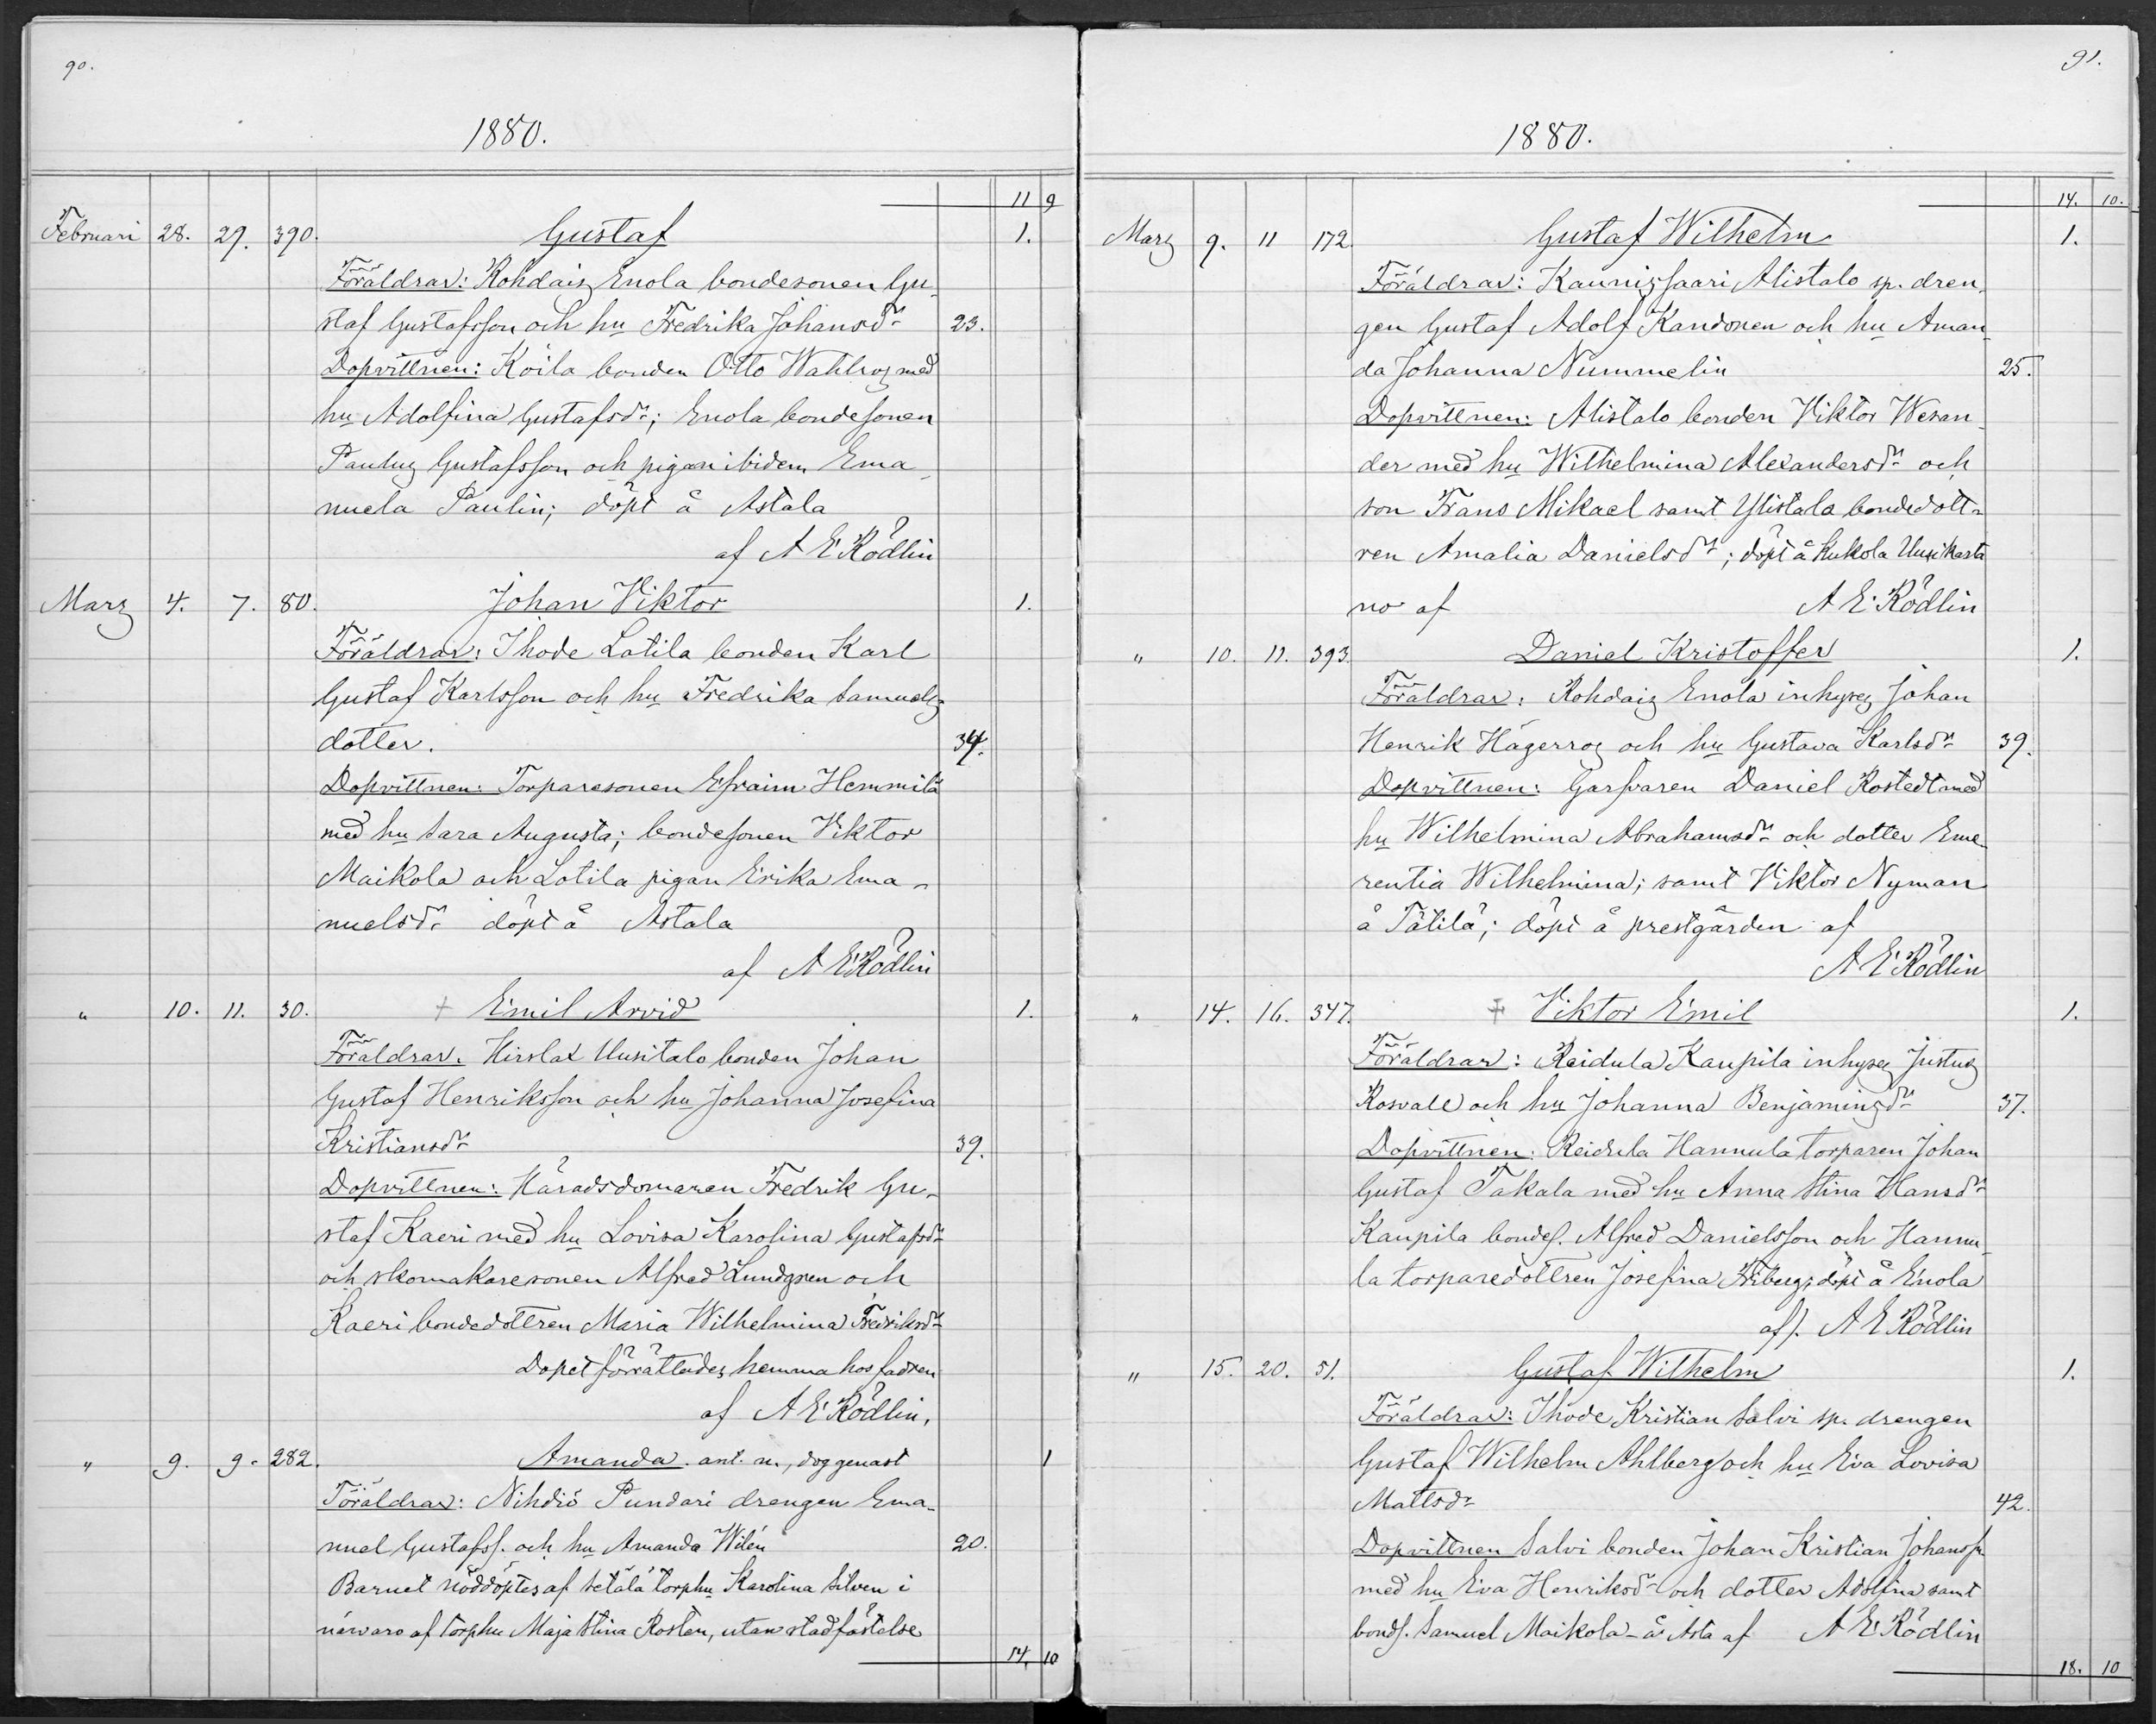 90.
1880.
11 9
Februari 28. 29. 390. Gustaf 1.
Föräldrar: Rohdais Enola bondesonen Gu-
staf Gustafsson och hu Fredrika Johansdr 23.
Dopvittnen: Koila bonden Otto Wahlros med
hu Adolfina Gustafsdr; Enola bondesonen
Paulus Gustafsson och pigan ibidem Ema-
nuela Paulin; döpt å Astala
af A E Rödlin
Mars 4. 7. 80. Johan Viktor 1.
Föräldrar: Ihode Latila bonden Karl
Gustaf Karlsson och hu Fredrika Samuels
dotter. 34.
Dopvittnen: Torparesonen Efraim Hemmilä
med hu Sara Augusta; bondesonen Viktor
Maikola och Lotila pigan Erika Ema-
nuelsdr döpt å Astala
af A E Rödlin
" 10. 11. 30. + Emil Arvid 1.
Föräldrar. Hirslax Uusitalo bonden Johan
Gustaf Henriksson och hu Johanna Josefina
Kristiansdr 39.
Dopvittnen: Häradsdomaren Fredrik Gu-
staf Kaeri med hu Lovisa Karolina Gustafsdr
och skomakaresonen Alfred Lundgren och
Kaeri bondedottren Maria Wilhelmina Fredriksdr
Dopet förrättades hemma hos fadren
af A E Rödlin.
" 9. 9. 282. Amanda. ant. n., dog genast 1
Föräldrar: Nihdiö Pundari drengen Ema-
nuel Gustafss. och hu Amanda Wilén 20.
Barnet nöddöptes af Setälä torphu Karolina Silven i
närvaro af torphu Maja Stina Rosten, utan stadfästelse
14. 10
91.
1880.
14. 10.
Mars 9. 11 172. Gustaf Wilhelm 1.
Föräldrar: Kaunissaari Alistalo sp. dren-
gen Gustaf Adolf Kandonen och hu Aman-
da Johanna Nummelin 25.
Dopvittnen: Alistalo bonden Viktor Wesan-
der med hu Wilhelmina Alexandersdr och
son Frans Mikael samt Ylistalo bondedott-
ren Amalia Danielsdr; döpt å Kukola Uusikarta
no af A E Rödlin
" 10. 11. 393. Daniel Kristoffer 1.
Föräldrar: Rohdais Enola inhyses Johan
Henrik Hägerros och hu Gustava Karlsdr 39.
Dopvittnen: Garfvaren Daniel Rostedt med
hu Wilhelmina Abrahamsdr och dotter Eme-
rentia Wilhelmina; samt Viktor Nyman
å Tätilä; döpt å prestgården af
A E Rödlin
" 14. 16. 347. + Viktor Emil 1.
Föräldrar: Reidula Kaupila inhyses Justus
Rosvall och hu Johanna Benjaminsdr 37.
Dopvittnen: Reidula Hannula torparen Johan
Gustaf Takala med hu Anna Stina Hansdr
Kaupila bondes. Alfred Danielsson och Hannu-
la torparedottren Josefina Friberg; döpt å Enola
af). A E Rödlin
" 15. 20. 51. Gustaf Wilhelm 1.
Föräldrar: Ihode Kristian Salvi sp. drengen
Gustaf Wilhelm Ahlberg och hu Eva Lovisa
Mattsdr 42.
Dopvittnen Salvi bonden Johan Kristian Johanss.
med hu Eva Henriksdr och dotter Adolfina samt
bonds. Samuel Maikola - å Asta af A E Rödlin
18. 10